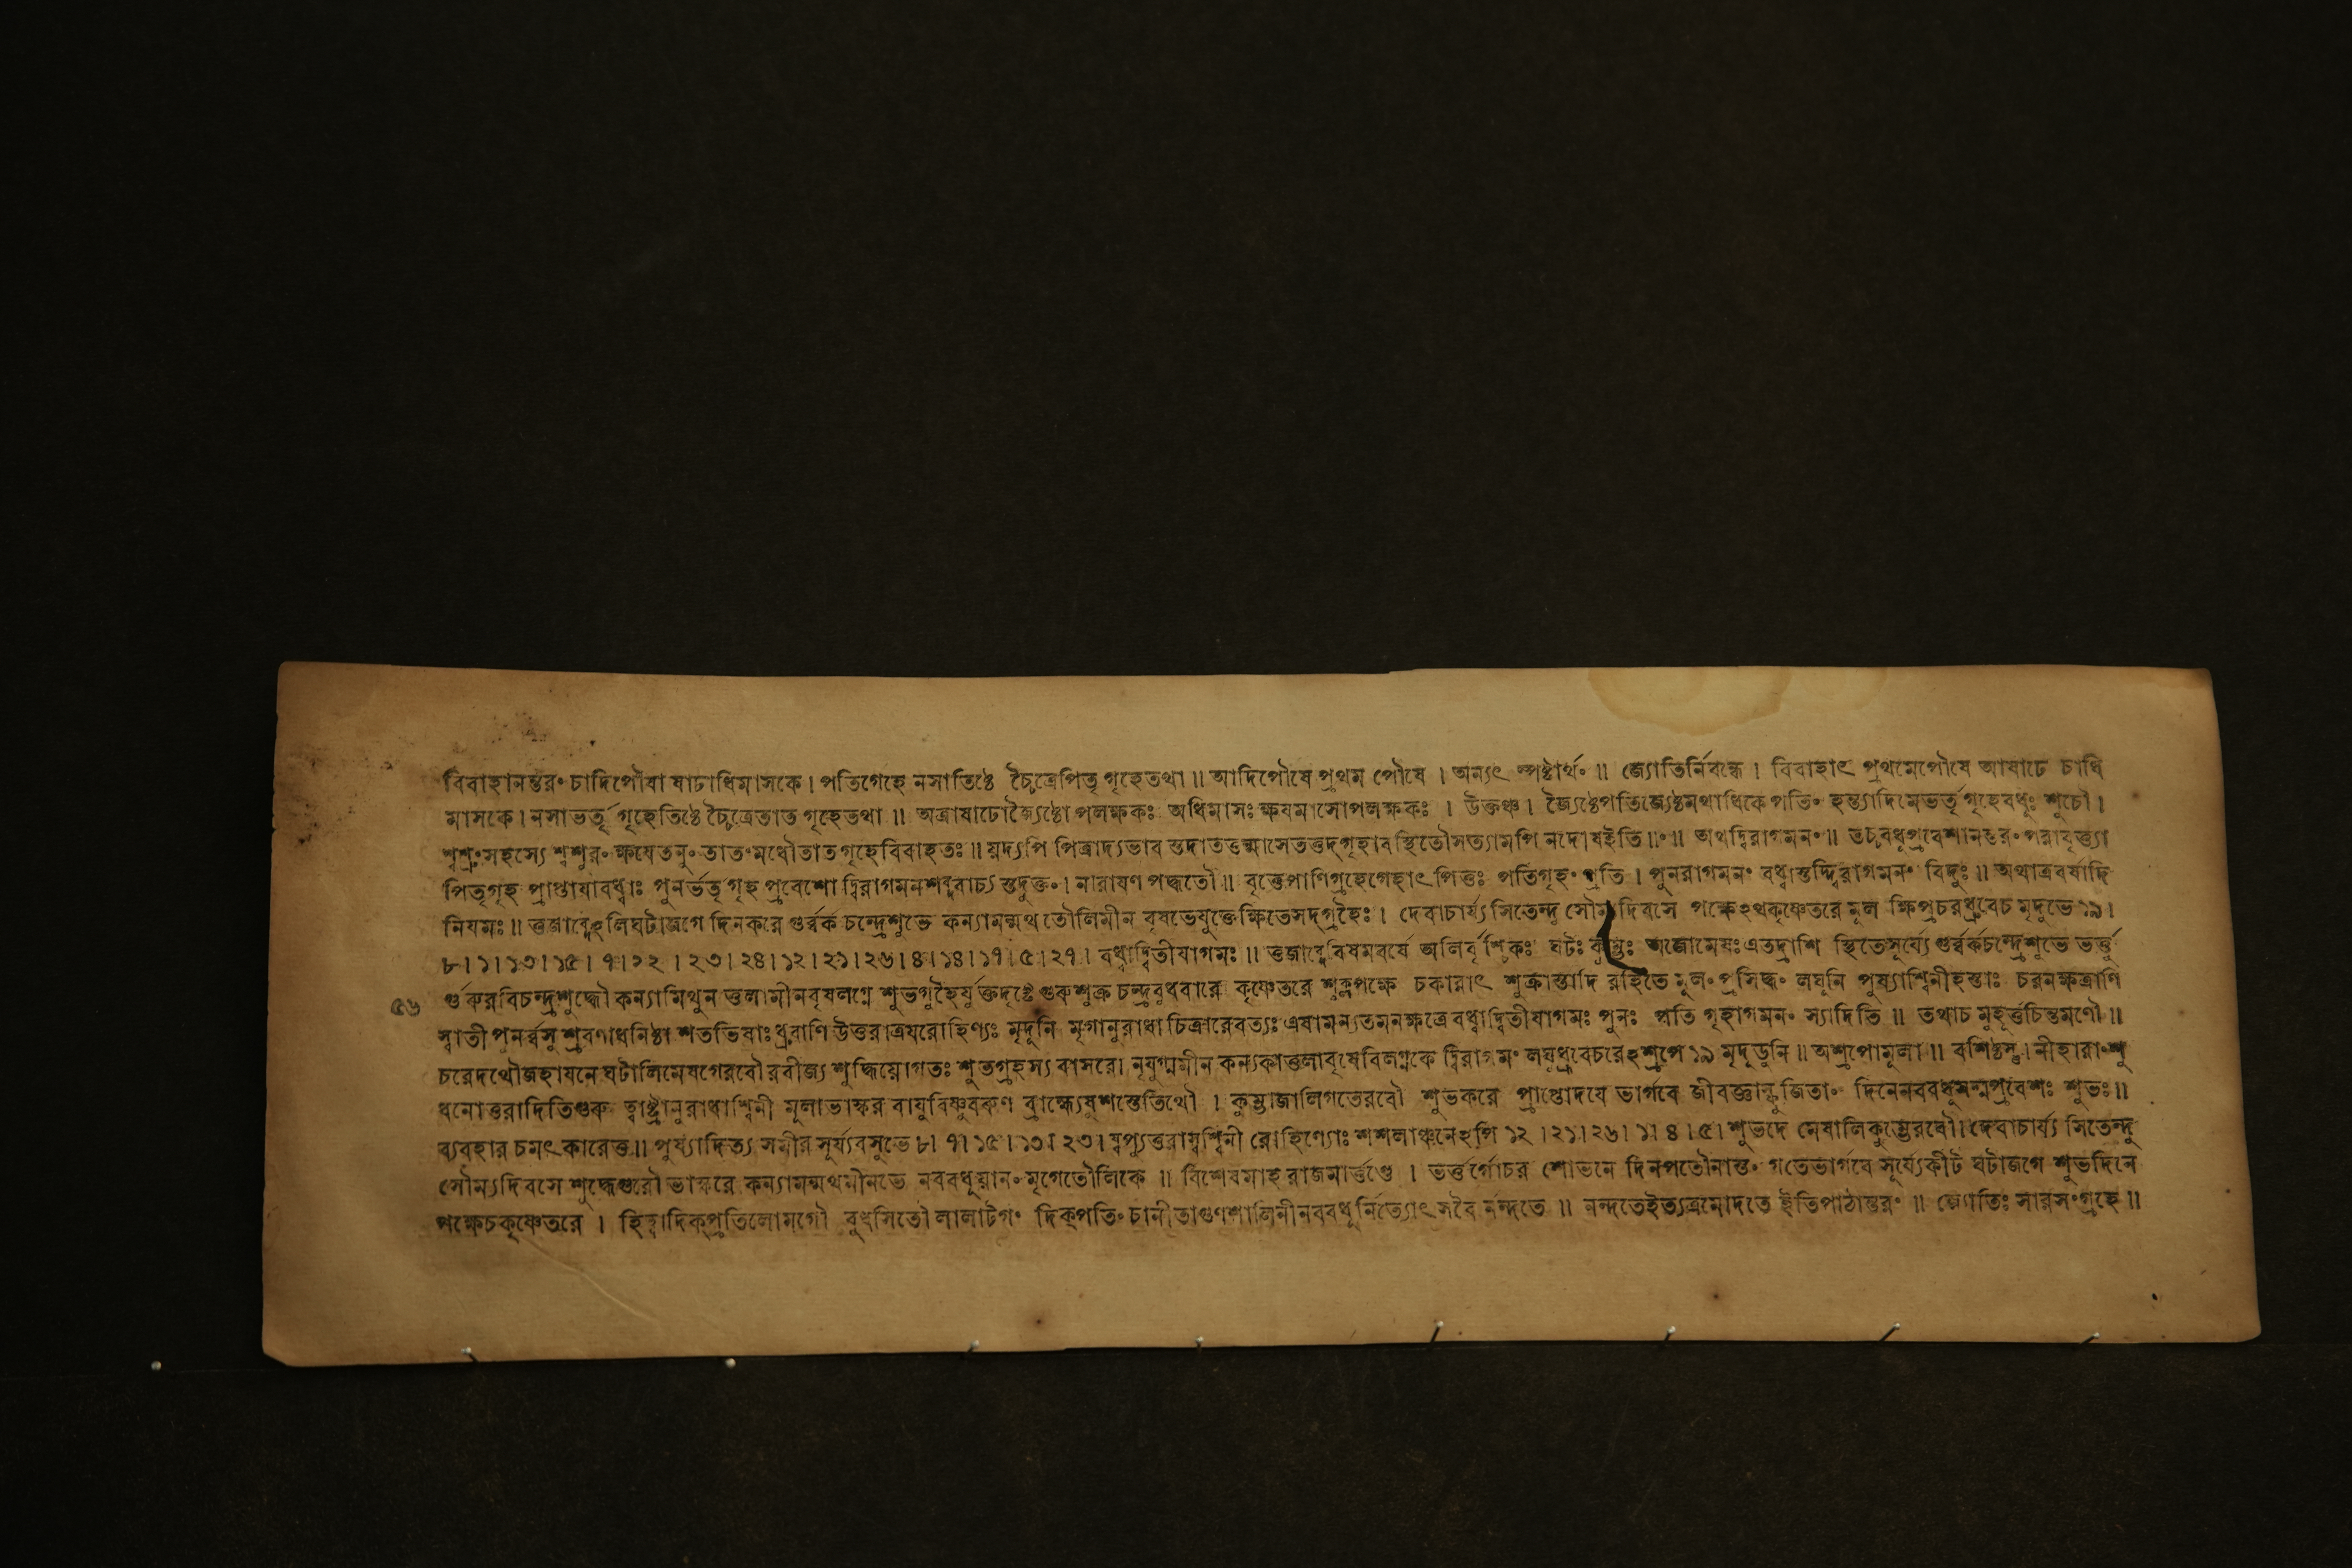 বিবাহানন্তরং চাদিপৌষা ষাঢাধিমাসকে। পতিগেহে নসাতিষ্ঠে চ্চৈত্রেপিতৃ গৃহেতথা॥ আদিপৌষে প্রথম পৌষে । অন্যৎ স্পষ্টার্থং॥ জ্যোতির্নিবন্ধে। বিবাহাৎ প্রথমেপৌষে আষাঢে চাধি
মাসকে। নসাভর্তৃ গৃহেতিষ্ঠে চ্চৈত্রেতাত গৃহেতথা॥ অত্রাষাঢোজ্যৈষ্ঠো পলক্ষকঃ অধিমাসঃ ক্ষযমাসোপলক্ষকঃ । উক্তঞ্চ। জ্যৈষ্ঠেপতিজ্যেষ্ঠমথাধিকে পতিং হন্ত্যাদিমেভর্তৃ গৃহেবধুঃ শুচৌ।
শ্বশ্রূং সহস্যে শ্বশুরং ক্ষযেতনুং তাতংমধৌতাত গৃহেবিবাহতঃ॥ যদ্যপি পিত্রাদ্যভাব স্তদাতত্তন্মাসেতত্তদ্গৃহাব স্থিতৌসত্যামপি নদোষইতি॥০॥ অথদ্বিরাগমনং॥ তচ্চবধূপ্রবেশানন্তরং পরাবৃত্ত্যা
পিতৃগৃহ প্রাপ্তাযাবধ্বাঃ পুনর্ভর্তৃ গৃহ প্রবেশো দ্বিরাগমনশব্দবাচ্য স্তদুক্তং। নারাযণ পদ্ধতৌ॥ বৃত্তেপাণিগ্রহেগেহাৎ পিত্তঃ পতিগৃহং প্রতি। পুনরাগমনং বধ্বাস্তদ্দ্বিরাগমনং বিদুঃ॥ অথাত্রবর্ষাদি
নিযমঃ॥ ত্তজাব্দেঽলিঘটাজগে দিনকরে গুর্ব্বর্ক চন্দ্রেশুভে কন্যামন্মথ তৌলিমীন বৃষভেযুক্তেক্ষিতেসদ্গ্রহৈঃ। দেবাচার্য্য সিতেন্দু সৌম্য দিবসে পক্ষেঽথকৃষ্ণেতরে মূল ক্ষিপ্রচরধ্রুবেচ মৃদুভে ১৯।
৮।১।১৩।১৫। ৭।২২। ২৩। ২৪। ১২। ২১। ২৬। ৪। ১৪। ১৭। ৫। ২৭। বধ্বাদ্বিতীযাগমঃ॥ ত্তজাব্দে বিষমবর্ষে অলির্বৃশ্চিকঃ ঘটঃ কুম্ভঃ অজোমেষঃ এতদ্রাশি স্থিতেসূর্য্যে গুর্ব্বর্কচন্দ্রেশুভে ভর্ত্তু
৫৬
র্গুরুরবিচন্দ্রশুদ্ধৌ কন্যামিথুন ত্তলামীনবৃষলগ্নে শুভগ্রহৈর্যুক্তদৃষ্টে গুরুশুক্র চন্দ্রবুধবারে কৃষ্ণেতরে শুক্লপক্ষে চকারাৎ শুক্রাস্তাদি রহিতে মূলং প্রসিদ্ধং লঘুনি পুষ্যাশ্বিনীহস্তাঃ চরনক্ষত্রাণি
স্বাতী পুনর্ব্বসু শ্রবণাধনিষ্ঠা শতভিষাঃ ধ্রুবাণি উত্তরাত্রযরোহিণ্যঃ মৃদুনি মৃগানুরাধা চিত্রারেবত্যঃ এষামন্যতমনক্ষত্রে বধ্বাদ্বিতীযাগমঃ পুনঃ পতি গৃহাগমনং স্যাদিতি॥ তথাচ মুহূর্ত্তচিন্তমণৌ॥
চরেদথৌজহাযনে ঘটালিমেষগেরবৌ রবীজ্য শুদ্ধিযোগতঃ শুভগ্রহস্য বাসরে। নৃযুগ্মমীন কন্যকাত্তলাবৃষেবিলগ্নকে দ্বিরাগমং লঘুধ্রুবেচরেঽশ্রপে ১৯ মৃদুডুনি॥ অশ্রপোমূলা॥ বশিষ্ঠস্তু। নীহারাংশু
ধনোত্তরাদিতিগুরু ত্বাষ্ট্রানুরাধাশ্বিনী মূলাভাস্কর বাযুবিষ্ণুবরুণ ব্রাহ্ম্যেষুশস্তেতিথৌ। কুম্ভাজালিগতেরবৌ শুভকরে প্রাপ্তোদযে ভার্গবে জীবজ্ঞাস্ফুজিতাং দিনেনববধূসন্মপ্রবেশঃ শুভঃ॥
ব্যবহার চমৎকারেত্ত॥ পুষ্যাদিত্য সমীর সূর্য্যবসুভে ৮। ৭। ১৫। ১৩। ২৩। ষ্বপ্যুত্তরাস্বশ্বিনী রোহিণ্যোঃ শশলাঞ্ছনেঽপি ১২। ২১। ২৬। ১। ৪। ৫। শুভদে মেষালিকুম্ভেরবৌ। দেবাচার্য্য সিতেন্দু
সৌম্যদিবসে শুদ্ধেগুরৌ ভাস্করে কন্যামন্মথমীনভে নববধুযানং মৃগেতৌলিকে॥ বিশেষমাহ রাজমার্ত্তণ্ডে । ভর্ত্তুর্গোচর শোভনে দিনপতৌনাস্তং গতেভার্গবে সূর্য্যেকীট ঘটাজগে শুভদিনে
পক্ষেচকৃষ্ণেতরে । হিত্বাদিক্প্রতিলোমগৌ বুধসিতৌ লালাটগং দিক্পতিং চানীতাগুণশালিনীনববধূর্নিত্যোৎসবৈ র্নন্দতে॥ নন্দতেইত্যত্রমোদতে ইতিপাঠান্তরং॥ জ্যোতিঃ সারসংগ্রহে॥